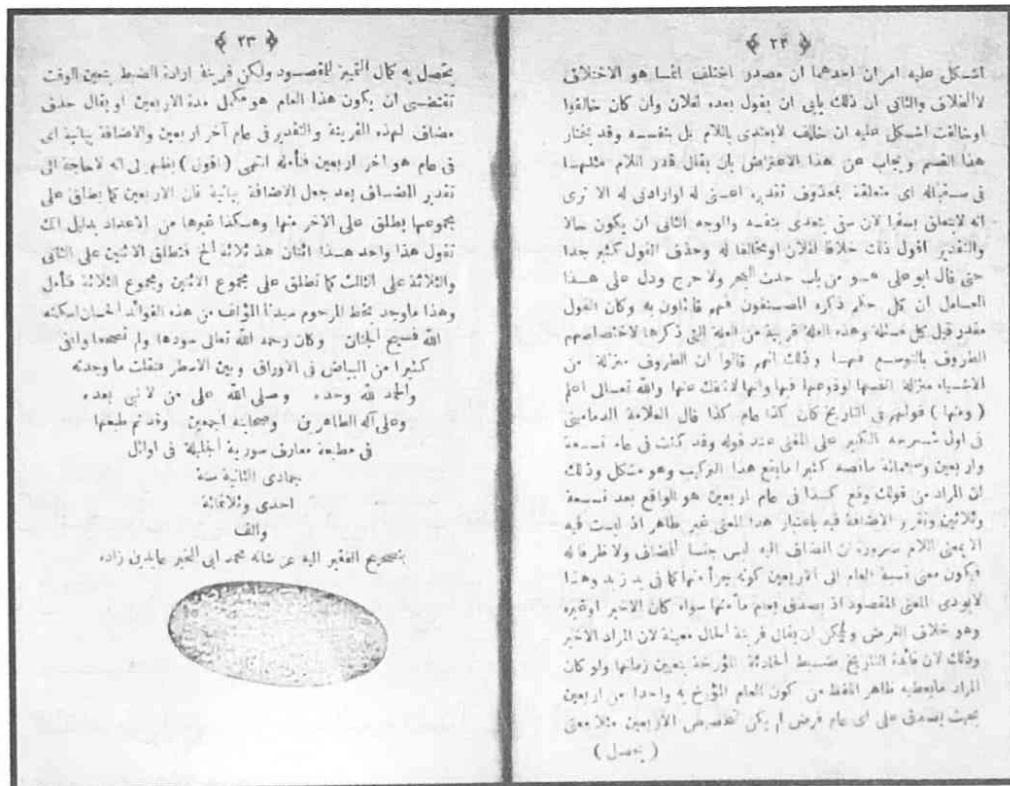 ﴿ ٢٢ ﴾
اشكل عليه امران احدهما ان مصدر اختلف انما هو الاختلاف
لا الخلاف والثانى ان ذلك يابى ان يقول بعده لفلان وان كان خالفوا
اوخالفت اشكل عليه ان خالف لايتعدى باللام بل بنفسه وقد يختار
هذا القسم ويجاب عن هذا الاعتراض بان يقال قدر اللام مثلها
فى سقياله اى متعلقة بمحذوف تقديره اعنى له اوارادتى له الا ترى
انه لايتعلق بسقيا لان سقى يتعدى بنفسه والوجه الثانى ان يكون حالا
والتقدير اقول ذلك خلافا لفلان اومخالفا له وحذف القول كثير جدا
حتى قال ابو على هو من باب حدث البحر ولا حرج ودل على هذا
العامل ان كل حكم ذكره المصنفون فهم قائلون به وكان القول
مقدر قبل كل مسئلة وهذه العلة قريبة من العلة التى ذكرها لاختصاصهم
الظروف بالتوسع فيها وذلك انهم قالوا ان الظروف منزلة من
الاشياء منزلة انفسها لوقوعها فيها وانها لاتنفك عنها والله تعالى اعلم
( ومنها ) قولهم فى التاريخ كان كذا عام كذا قال العلامة الدمامينى
فى اول شرحه الكبير على المغنى عند قوله وقد كنت فى عام تسعة
واربعين وسبعمائة مانصه كثيرا مايقع هذا التركيب وهو مشكل وذلك
ان المراد من قولك وقع كذا فى عام اربعين هو الواقع بعد تسعة
وثلاثين وتقرير الاضافة فيه باعتبار هذا المعنى غير ظاهر اذ ليست فيه
الا بمعنى اللام ضرورة ان المضاف اليه ليس جنسا للمضاف ولا ظرفا له
فيكون معنى نسبة العام الى الاربعين كونه جزأ منها كما فى يد زيد وهذا
لايؤدى المعنى المقصود اذ يصدق بعام ما منها سواء كان الاخير اوغيره
وهو خلاف الفرض ويمكن ان يقال قرينة الحال معينة لان المراد الاخير
وذلك لان فائدة التاريخ ضبط الحادثة المؤرخة بتعيين زمانها ولو كان
المراد مايعطيه ظاهر اللفظ من كون العام المؤرخ به واحدا من اربعين
بحيث يصدق على اى عام فرض لم يكن لتخصيص الاربعين مثلا معنى
( يحصل )
﴿ ٢٣ ﴾
يحصل به كمال التمييز للمقصود ولكن قرينة ارادة الضبط بتعين الوقت
تقتضى ان يكون هذا العام هو مكمل مدة الاربعين او يقال حذف
مضاف لهذه القرينة والتقدير فى عام آخر اربعين والاضافة بيانية اى
فى عام هو اخر اربعين فتأمله انتهى ( اقول ) يظهر لى انه لاحاجة الى
تقدير المضاف بعد جعل الاضافة بيانية فان الاربعين كما يطلق على
مجموعها يطلق على الاخر منها وهكذا غيرها من الاعداد بدليل انك
تقول هذا واحد هذا اثنان هذ ثلاثة الخ فتطلق الاثنين على الثانى
والثلاثة على الثالث كما تطلق على مجموع الاثنين ومجموع الثلاثة فتأمل
وهذا ماوجد بخط المرحوم سيدنا المؤلف من هذه الفوائد الحسان اسكنه
الله فسيح الجنان وكان رحمه الله تعالى سودها ولم تجمعها والقى
كثيرا من البياض فى الاوراق وبين الاسطر فنقلت ما وجدته
والحمد لله وحده وصلى الله على من لا نبى بعده
وعلى آله الطاهرين وصحابته اجمعين وقد تم طبعها
فى مطبعة معارف سورية الجليلة فى اوائل
جمادى الثانية سنة
احدى وثلاثمائة
والف
بتصحيح الفقير اليه عن شانه محمد ابى الخير عابدين زاده